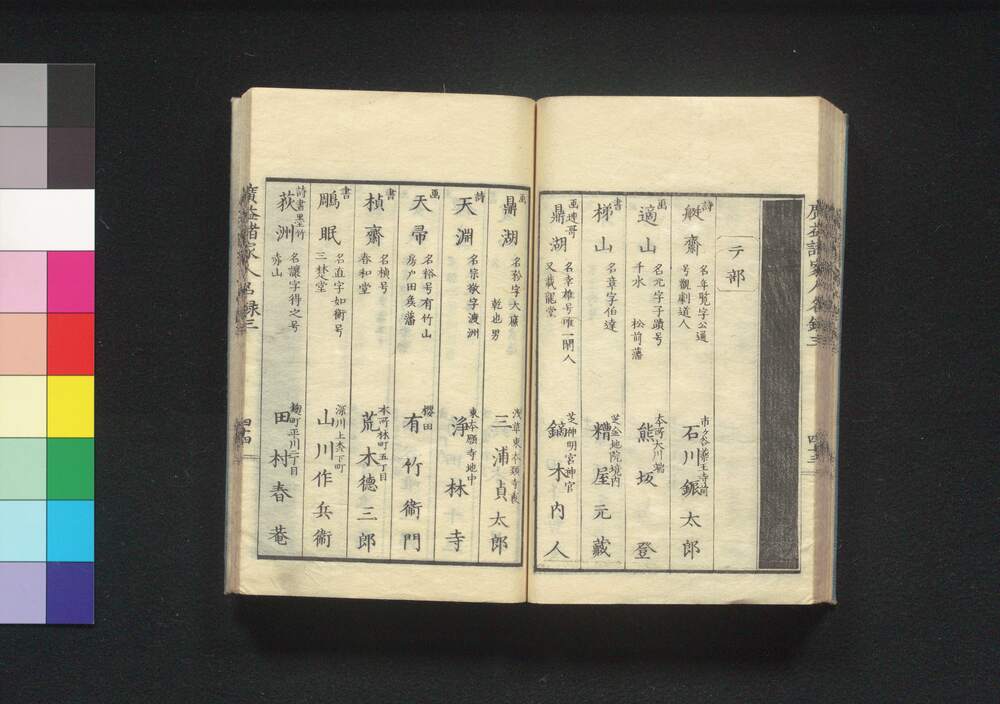 廣益諸家人名録三
四十三
テ部
詩
艇齋
名年覧字公通
号觀劇道人
市ヶ谷藥王寺前
石川鋠太郎
画
適山
名元字子蹟号
千水 松前藩
本所大川端
熊坂登
書
梯山
名章字伯達
芝金地院境内
糟屋元藏
画連哥
鼎湖
名幸雄号唯一閑人
又載龍堂
芝神明宮神官
鏑木内人
画
鼎湖
名字大
乾也男
浅草東本願寺後
三浦貞太郎
詩
天淵
名宗敬字洩洲
東本願寺地中
浄林寺
画
天帚
名裕号有竹山
房戸田矦藩
櫻田
有竹衛門
書
楨齋
名楨号
春和堂
本所林町五丁目
荒木徳三郎
書
鵰眠
名直字如衡号
三楚堂
深川上大下町
山川作兵衛
詩書墨竹
荻洲
名讓字得之号
赤山
麹町平川二丁目
田村春菴
廣益諸家人名録三
四十四